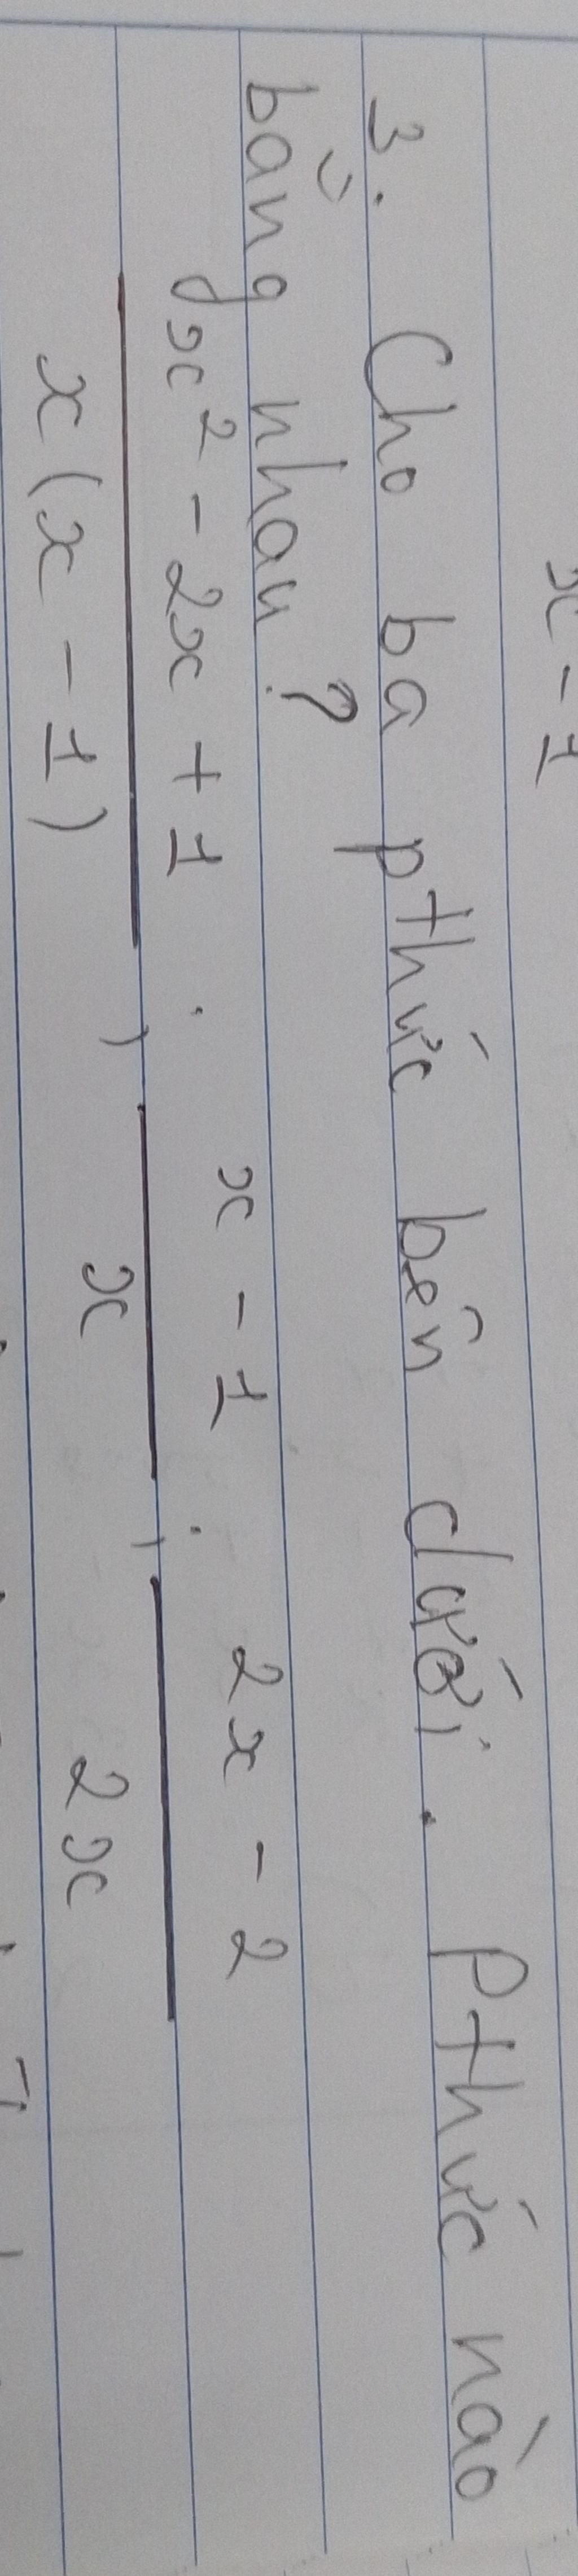 x - 1
3. Cho ba pthức bên dưới. Pthức nào
bằng nhau?
x² - 2x + 1 . x - 1 . 2x - 2
x(x - 1) , x , 2x